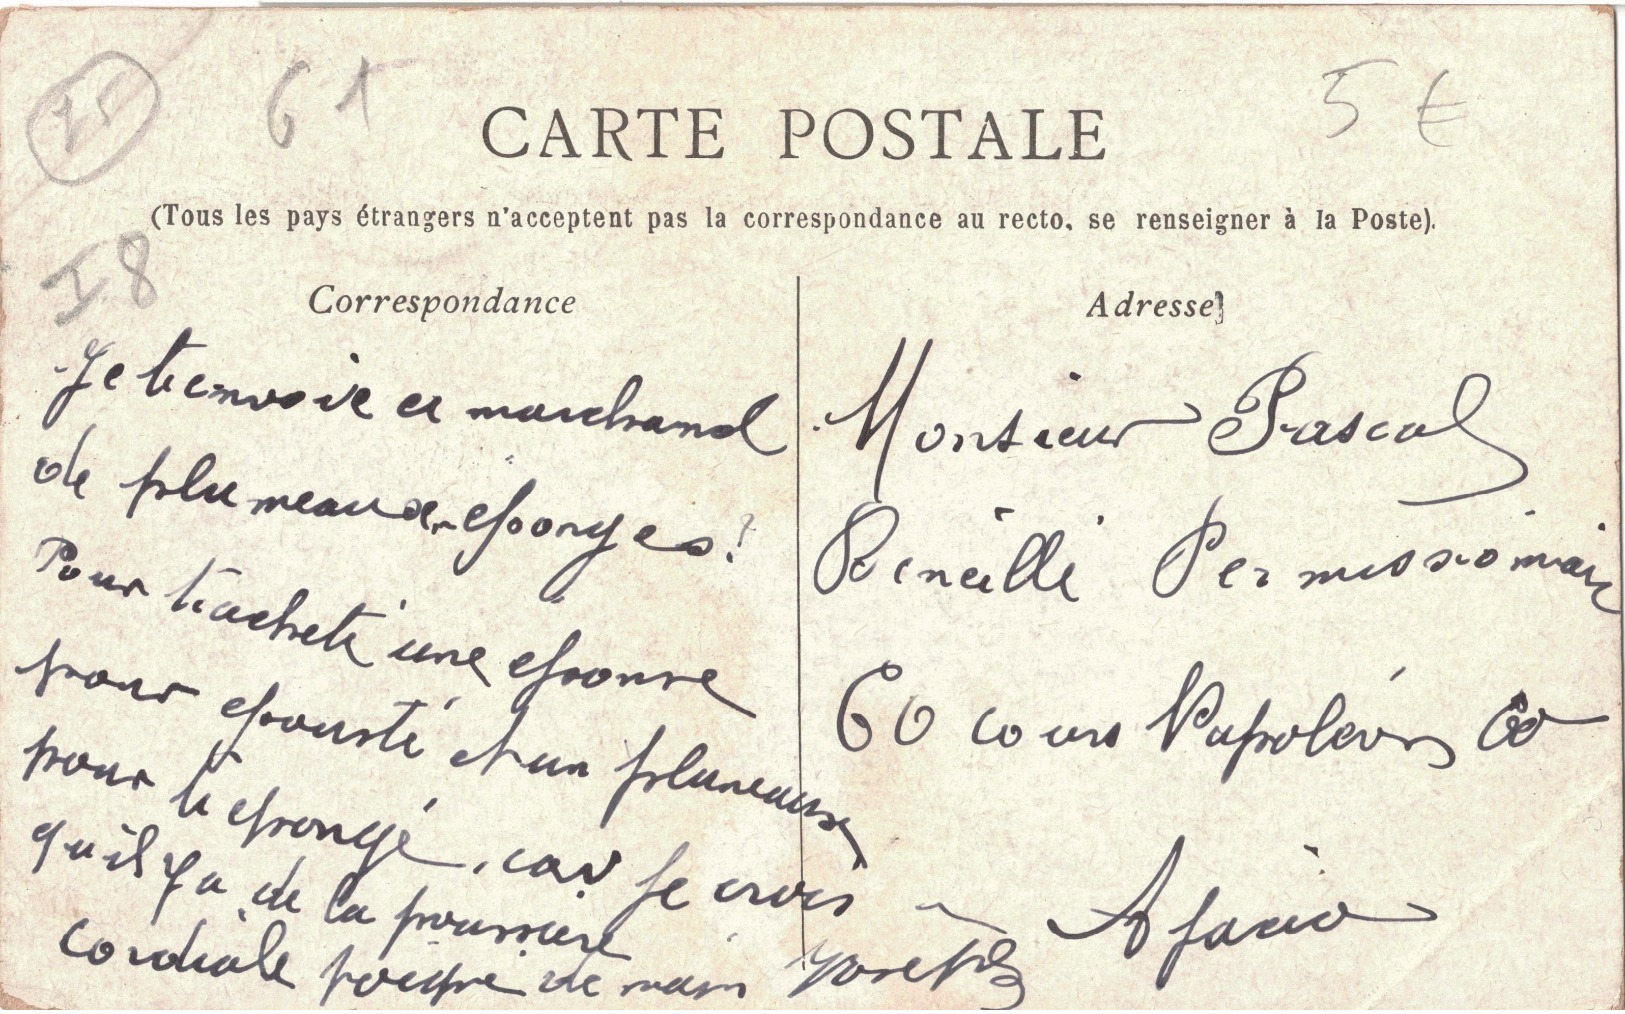 61
5 €
CARTE POSTALE
(Tous les pays étrangers n'acceptent pas la correspondance au recto, se renseigner à la Poste).
I8
Correspondance
Je t'envoie ce marchand
de plumeaux eponges!
Pour t'acheté une eponre
pour epousté et un plumeaux
pour t'epongé, car Je crois
qu'il y a de la poussiere
cordiale poigne de main Joseph
Adresse
Monsieur Pascal
Permissionaire
60 cours Napoléon 60
Ajaccio